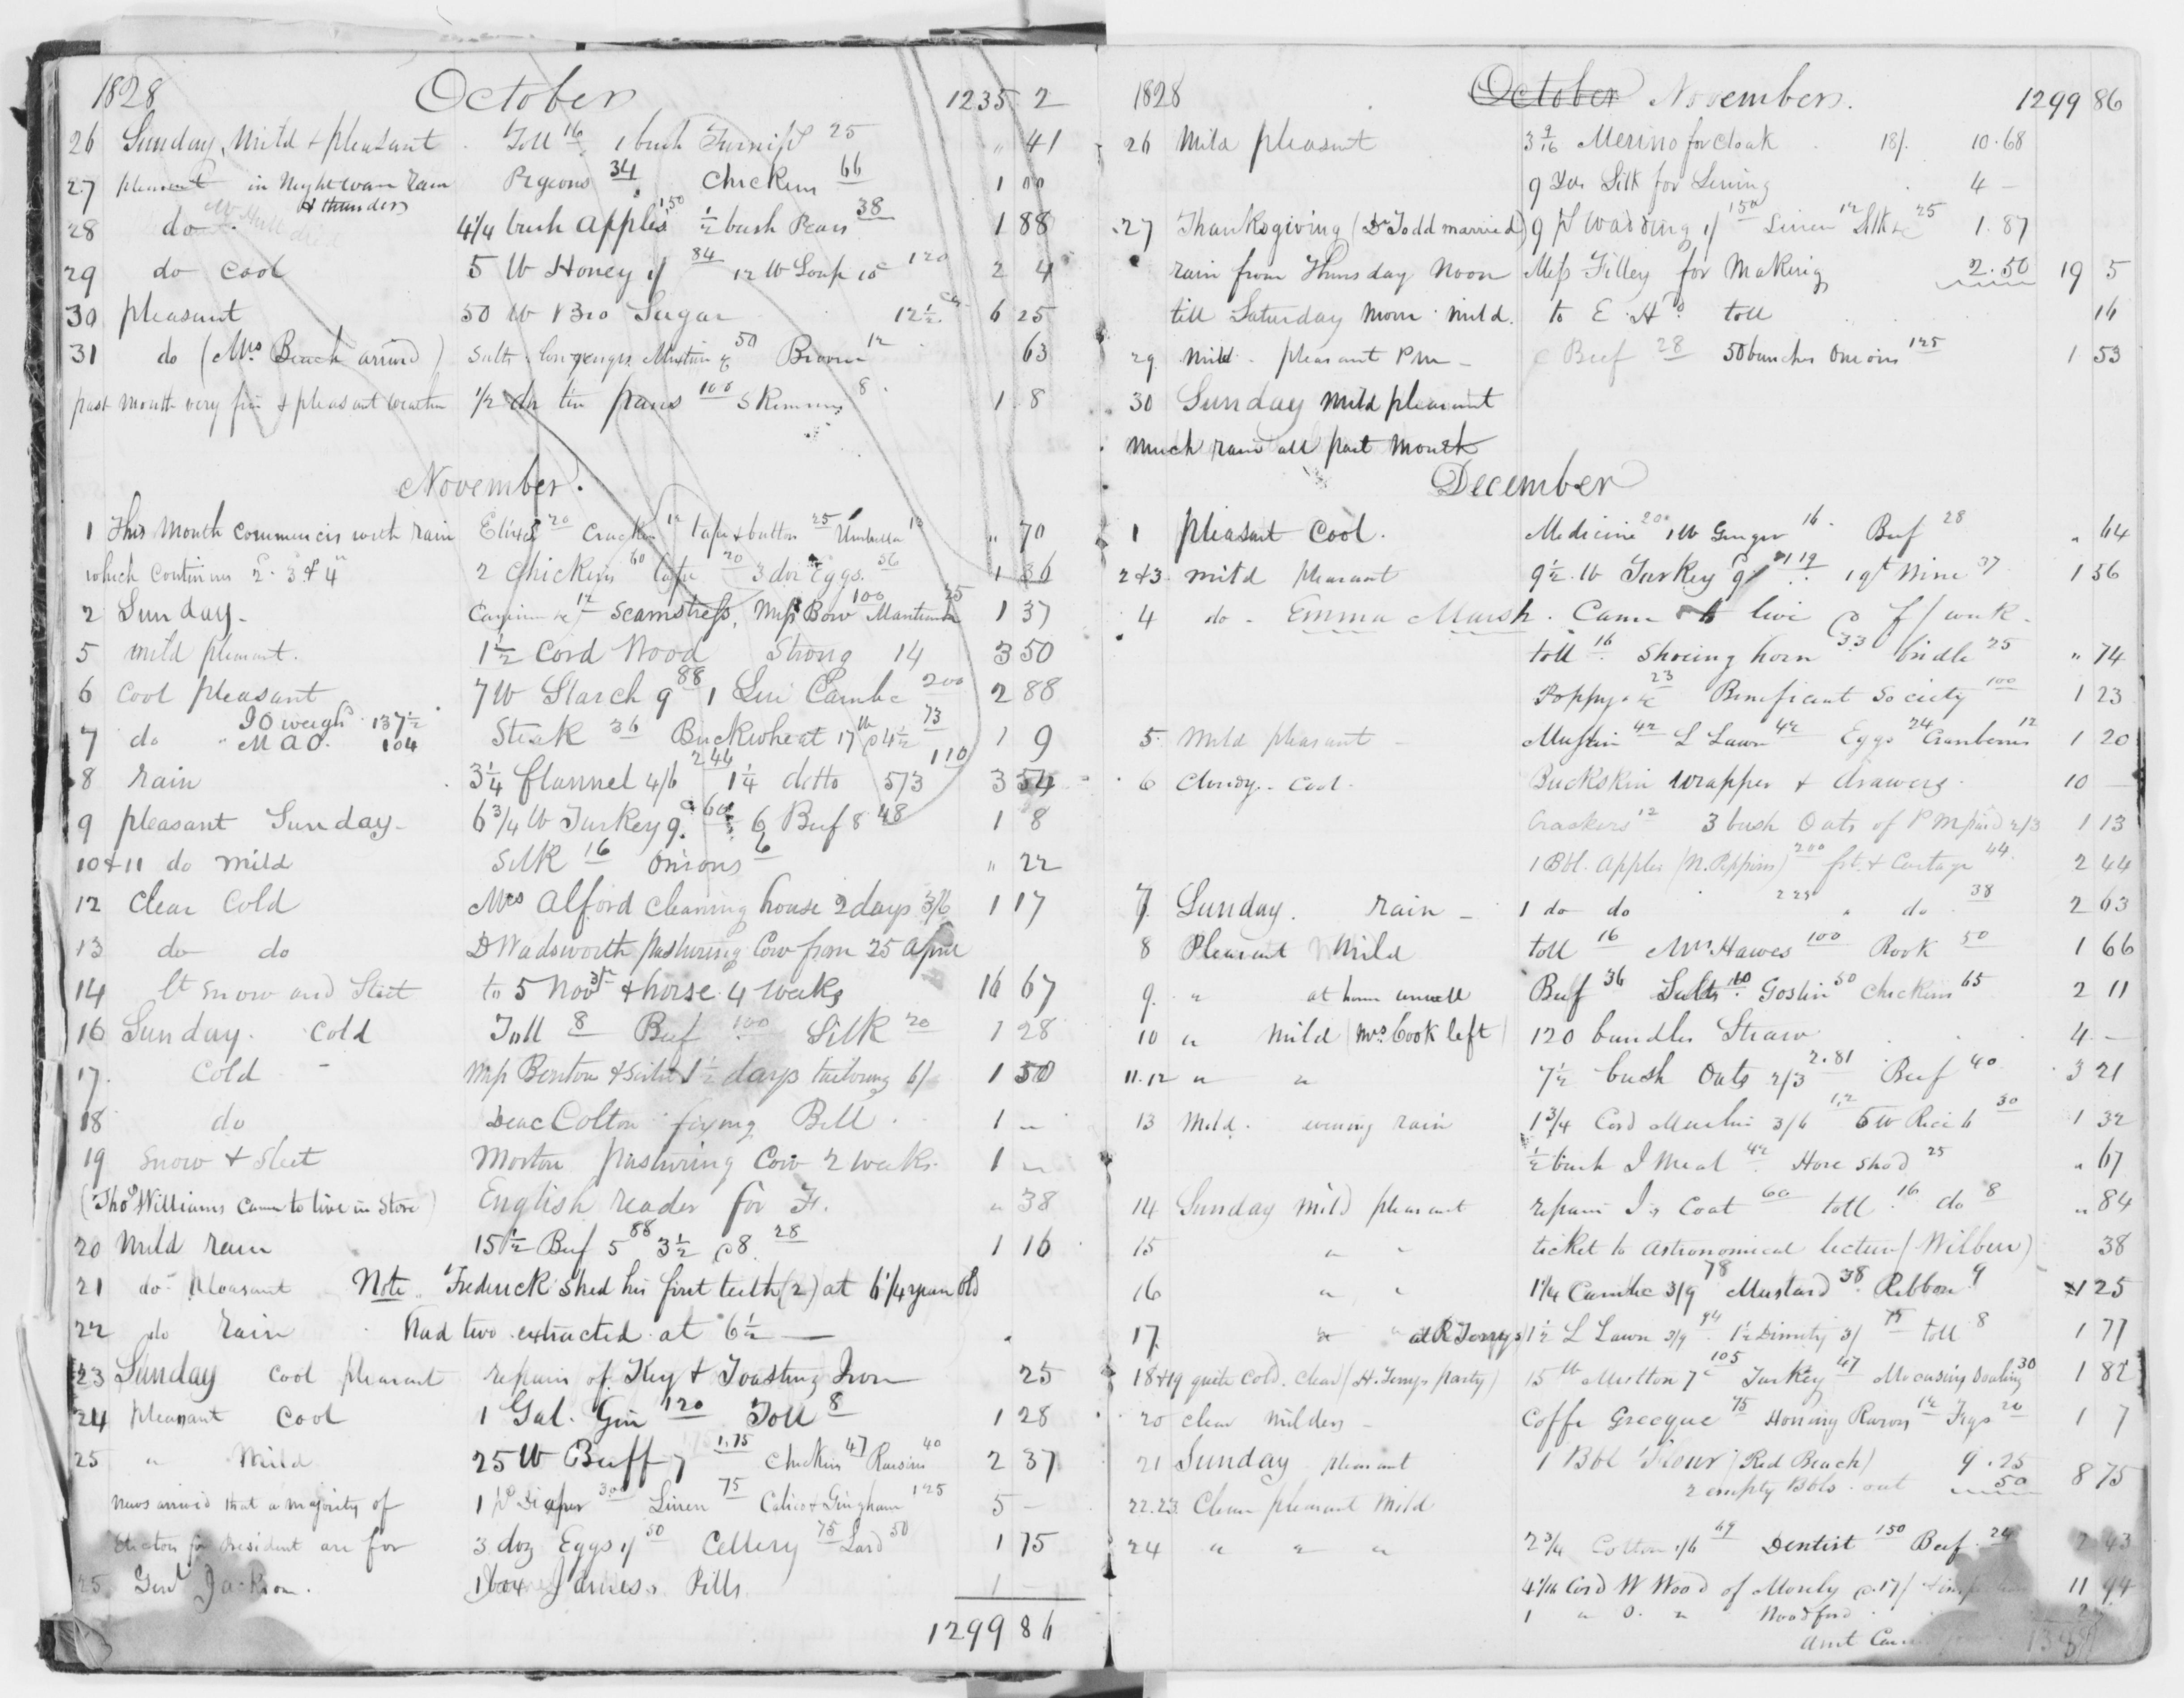 1828 October 1235 2
26 Sunday, Mild & pleasant Toll 16 1 bush Turnips 25 " 41
27 pleasant in Night warm Rain Pigeons 34 Chickens 66 1 00
& thunder
28 do 4 1/4 bush Apples 150 1/2 bush Pears 38 1 88
29 do Cool 5 lb Honey 1/ 84 12 lb Soap 10 120 2 4
30 pleasant 50 lb Bro Sugar 12 1/2 cts 6 25
31 do (Mrs Beach arrived) Salts lozenges Mustard &c 50 Broom 12 63
past month very fine & pleasant weather 1/2 doz tin pans 100 Skimmer 8 1 8
November.
1 This Month commences with rain Elixir 20 Cracker 12 tape & button 25 Umbrella 13 " 70
which continues 2d 3d & 4th 2 Chickens 60 tape 20 3 doz Eggs 56 1 36
2 Sunday 12 Seamstress, Miss Bow 100 25 1 37
5 mild pleasant. 1 1/2 Cord Wood Strong 14 3 50
6 Cool pleasant 7 lb Starch 9 88 1 200 2 88
7 do I O weighs 137 1/2 Steak 36 Buckwheat 17 lb @ 4 1/2 73 1 9
" M A O. 104
8 rain 3 1/4 flannel 4/6 244 1 1/4 ditto 5/3 110 3 54
9 pleasant Sunday 6 3/4 lb Turkey 9 c 60 6 Beef 8 48 1 8
10 & 11 do mild Silk 16 Onions 6 " 22
12 Clear Cold Mrs Alford cleaning house 2 days 3/6 1 17
13 do do D Wadsworth pasturing Cow from 25 April
14 lt Snow and Sleet to 5 Nov & horse 4 weeks 16 67
16 Sunday. Cold Toll 8 Beef 100 Silk 20 1 28
17. Cold Miss Benton & Sister 1 1/2 days tailoring 6/ 1 50
18 do Deac Colton fixing Bell 1 –
19 Snow & Sleet Morton pasturing Cow 2 weeks 1 –
(Tho Williams came to live in Store) English reader for F. " 38
20 Mild rain 15 1/2 Beef 5 88 3 1/2 @ 8 28 1 16
21 do pleasant Note. Frederick shed his first teeth (2) at 6 1/4 years old
22 do rain had two extracted at 6 1/2 —
23 Sunday Cool pleasant repairs of Key & Toasting Iron 25
24 pleasant Cool 1 Gal. Gin 120 Toll 8 1 28
25 " Mild 25 lb Beef 7 1.75 Chickens 47 Raisins 40 2 37
News arrived that a majority of 1 ps Diaper 300 Linen 75 Calico & Gingham 125 5 –
Electors for President are for 3 doz Eggs 1/ 50 Cellery 75 Lard 50 1 75
25 Genl Jackson. 1 box James's Pills 1 –
1299 86
1828 October Novembers. 1299 86
26 Mild pleasant 3 9/16 Merino for Cloak 18/. 10.68
9 Yds Silk for Lining 4 –
27 Thanksgiving (Dr Todd married) 9 ps Wadding 1/ 150 Linen 12 Silk &c 25 1.87
rain from Thursday Noon Miss Filley for Making 2.50 19 5
till Saturday morn mild. to E. H. toll 16
29 Mild. pleasant PM Beef 28 50 bunches Onions 125 1 53
30 Sunday Mild pleasant
Much rain all past Month
December
1 pleasant Cool. Medicine 20 1 lb Ginger 16 Beef 28 " 64
2 & 3 mild pleasant 9 1/2 lb Turkey 1 qt Wine 37 1 56
4 do Emma Marsh. Came to live @ f/ week
toll 16 Shoeing horn 33 bridle 25 " 74
Poppy &c 23 Beneficent Society 100 1 23
5. Mild pleasant Muslin 42 L Lawn 42 Eggs 24 Cranberries 12 1 20
6 Cloudy. Cool. Buckskin Wrapper & drawers 10 –
Crackers 12 3 bush Oats of P M 2/3 1 13
1 Bbl. Apples (N. Pippins) 200 frt. & Cartage 44 2 44
7. Sunday. rain 1 do do 225 do 38 2 63
8 Pleasant Mild toll 16 Mrs Hawes 100 Rook 50 1 66
9. " at home unwell Beef 36 Salts 60 Goslin 50 Chickens 65 2 11
10 " Mild (Mrs Cook left) 120 bundles Straw 4 –
11.12 " " 7 1/2 bush Oats 2/3 2.81 Beef 40 3 21
13 Mild. evening rain 1 3/4 Cord Muslin 3/6 5 lb Rice 6 30 1 32
1/2 bush I Meal 42 Hore Shod 25 " 67
14 Sunday Mild pleasant repairs I's Coat 60 toll 16 do 8 " 84
15 " " ticket to Astronomical lecture (Wilber) 38
16 " " 1 1/4 Cambc 3/9 78 Mustard 38 Ribbon 9 1 25
17. " " at R Terrys 1 1/2 L Lawn 3/9 94 1 1/2 Dimity 3/ 75 toll 8 1 77
18 & 19 quite cold. clear (H. Terrys party) 15 lb Mutton 7 105 Turkey 47 Mocasins Soaling 30 1 82
20 clear milder Coffe Grecque 75 Honing Razors 12 Figs 20 1 7
21 Sunday pleasant 1 Bbl Flour (Red Beach) 9.25
2 empty Bbls. out 50 8 75
22.23. Clear pleasant Mild
24 " " " 2 3/4 Cotton 1/6 69 Dentist 150 Beef 24 2 43
4 1/16 Cord W Wood of Mosely @ 17/ 11 94
1 " O. " Woodford
Amt